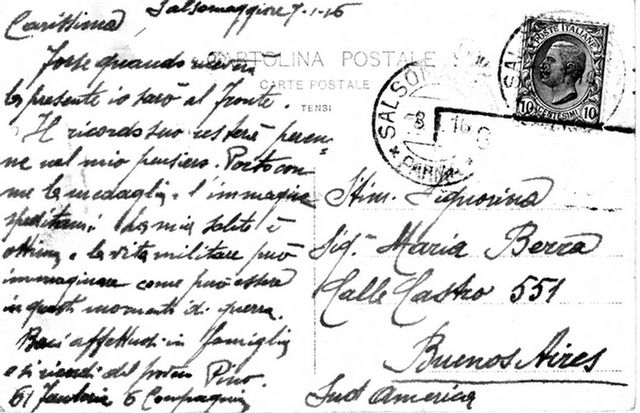 Salsomaggiore 7-1-16
Carissima,
Forse quando riceverà
la presente io sarò al fronte.
Il ricordo suo resterà peren-
ne nel mio pensiero. Porto con
me la medaglia e l'immagine
speditami! La mia salute è
ottima e la vita militare può
immaginare come può essere
in questi momenti di guerra.
Baci affettuosi in famiglia
e si ricordi del Pino.
61 Fanteria 6 Compagnia
CARTOLINA POSTALE
CARTE POSTALE
TENSI
SALSOM
8 1 16
PARMA
SAL
POSTE ITALIANE
10 CENTESIMI 10
Stim. Signorina
Sig.na Maria Berra
Calle Castro 551
Buenos Aires
Sud America